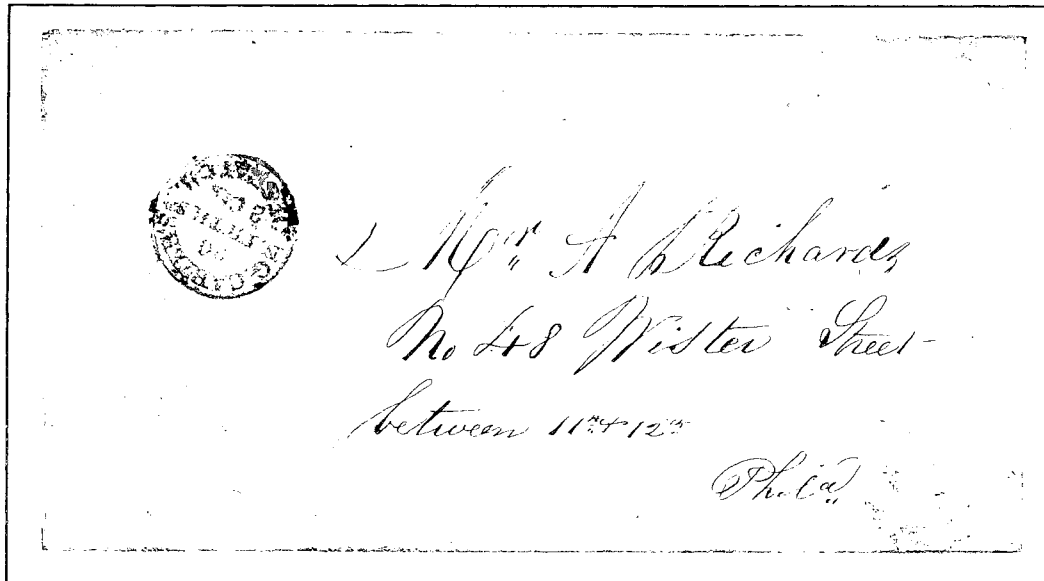 Mr A Richards
No 48 Wister Street
between 11th & 12th
Phila